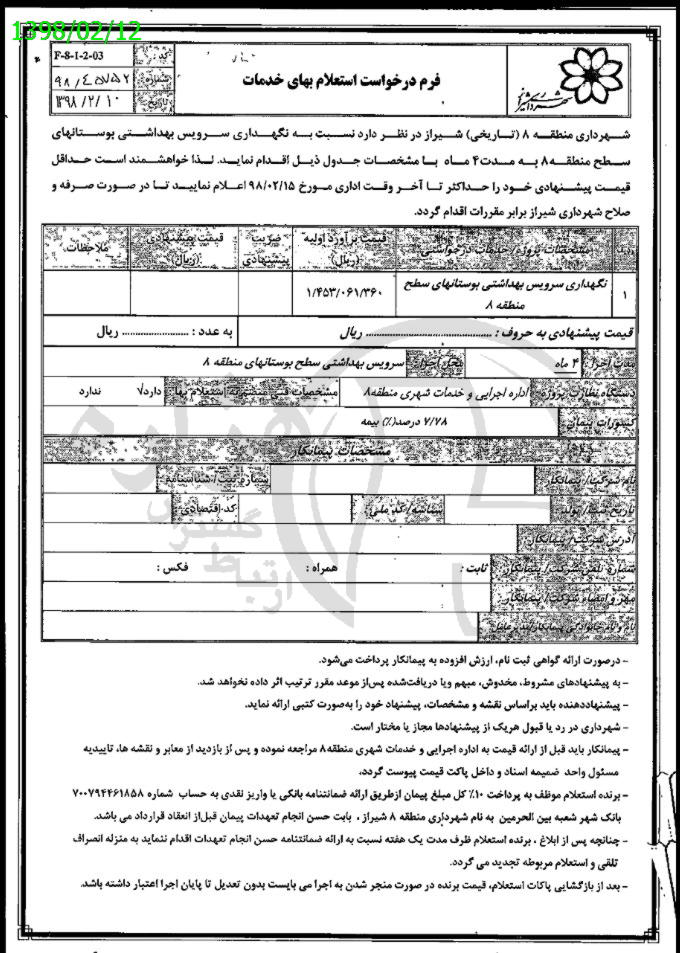 1398/02/12
کد: F-8-I-2-03
شماره: ۹۸/۴۵۷۵۲
تاریخ: ۱۳۹۸/۲/۱۰
شهرداری شیراز
فرم درخواست استعلام بهای خدمات
شهرداری منطقه ۸ (تاریخی) شیراز در نظر دارد نسبت به نگهداری سرویس بهداشتی بوستانهای
سطح منطقه ۸ به مدت ۴ ماه با مشخصات جدول ذیل اقدام نماید. لذا خواهشمند است حداقل
قیمت پیشنهادی خود را حداکثر تا آخر وقت اداری مورخ ۹۸/۰۲/۱۵ اعلام نمایید تا در صورت صرفه و
صلاح شهرداری شیراز برابر مقررات اقدام گردد.
ردیف مشخصات پروژه/خدمات درخواستی قیمت برآورد اولیه (ریال) ضریب پیشنهادی قیمت پیشنهادی (ریال) ملاحظات
۱ نگهداری سرویس بهداشتی بوستانهای سطح ۱/۴۵۳/۰۶۱/۳۶۰
منطقه ۸
قیمت پیشنهادی به حروف : ........................................ ریال به عدد : ..................... ریال
مدت اجرا: ۴ ماه محل اجرا: سرویس بهداشتی سطح بوستانهای منطقه ۸
دستگاه نظارت پروژه: اداره اجرایی و خدمات شهری منطقه۸ مشخصات فنی منضم به استعلام بها: دارد√ ندارد
کسورات پیمان: ۷/۷۸ درصد(٪) بیمه
مشخصات پیمانکار
نام شرکت/ پیمانکار: شماره ثبت/ شناسنامه:
تاریخ ثبت/ تولد: شناسه/ کد ملی: کد اقتصادی:
آدرس شرکت/ پیمانکار:
شماره تلفن شرکت/ پیمانکار: ثابت : همراه : فکس :
مهر و امضاء شرکت/ پیمانکار:
نام و نام خانوادگی پیمانکار/مدیرعامل:
هزاره
گستران
ارتباط
- درصورت ارائه گواهی ثبت نام، ارزش افزوده به پیمانکار پرداخت می‌شود.
- به پیشنهادهای مشروط، مخدوش، مبهم ویا دریافت‌شده پس‌از موعد مقرر ترتیب اثر داده نخواهد شد.
- پیشنهاددهنده باید براساس نقشه و مشخصات، پیشنهاد خود را به‌صورت کتبی ارائه نماید.
- شهرداری در رد یا قبول هریک از پیشنهادها مجاز یا مختار است.
- پیمانکار باید قبل از ارائه قیمت به اداره اجرایی و خدمات شهری منطقه۸ مراجعه نموده و پس از بازدید از معابر و نقشه ها، تاییدیه
مسئول واحد ضمیمه اسناد و داخل پاکت قیمت پیوست گردد.
- برنده استعلام موظف به پرداخت ۱۰٪ کل مبلغ پیمان ازطریق ارائه ضمانتنامه بانکی یا واریز نقدی به حساب شماره ۷۰۰۷۹۴۴۶۱۸۵۸
بانک شهر شعبه بین الحرمین به نام شهرداری منطقه ۸ شیراز ، بابت حسن انجام تعهدات پیمان قبل‌از انعقاد قرارداد می باشد.
- چنانچه پس از ابلاغ ، برنده استعلام ظرف مدت یک هفته نسبت به ارائه ضمانتنامه حسن انجام تعهدات اقدام ننماید به منزله انصراف
تلقی و استعلام مربوطه تجدید می گردد.
- بعد از بازگشایی پاکات استعلام، قیمت برنده در صورت منجر شدن به اجرا می بایست بدون تعدیل تا پایان اجرا اعتبار داشته باشد.